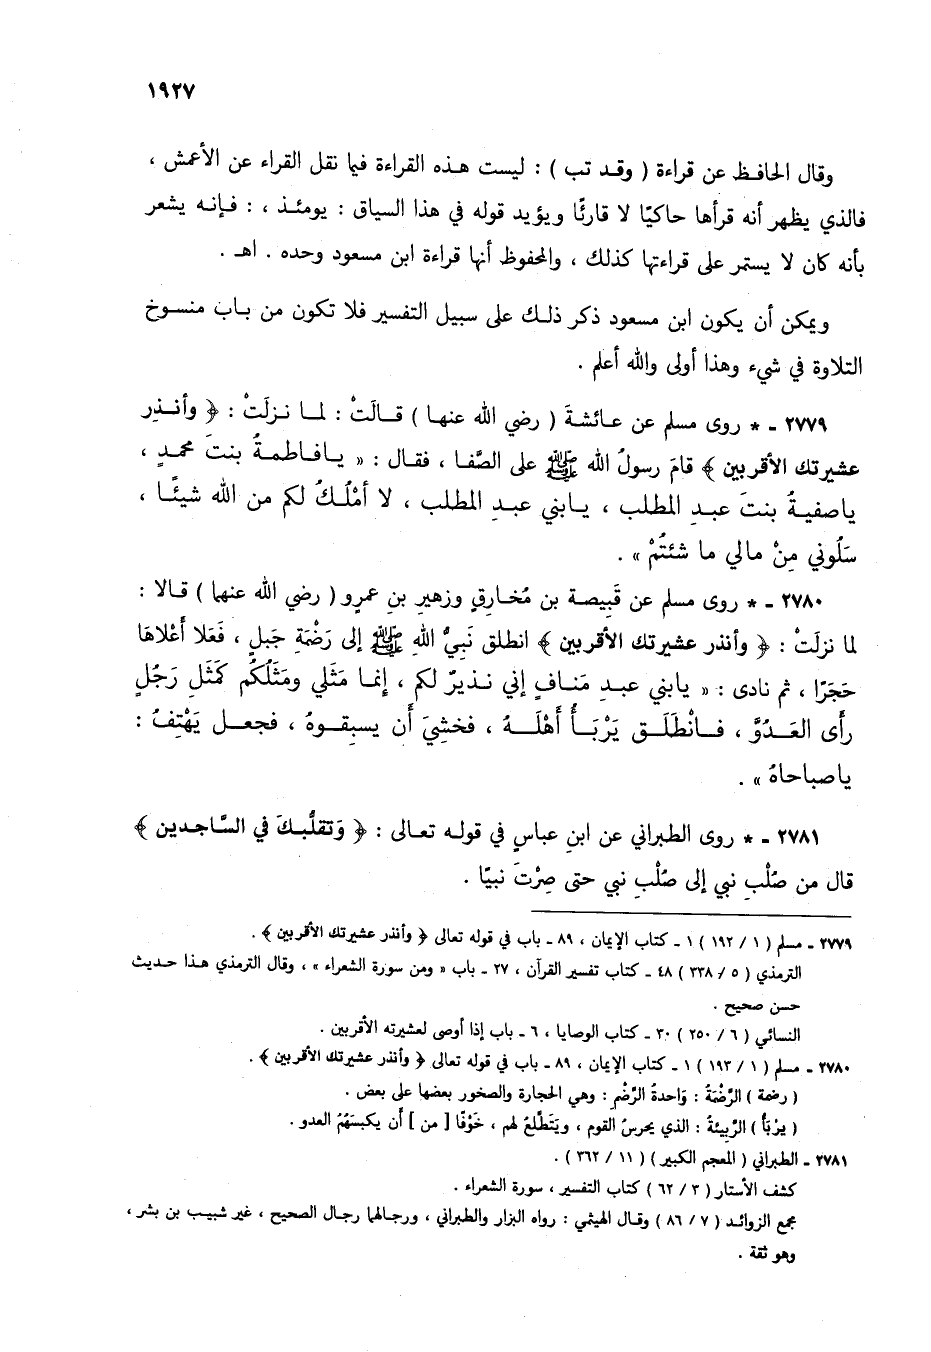 ١٩٢٧
وقال الحافظ عن قراءة ( وقد تب ) : ليست هذه القراءة فيما نقل القراء عن الأعمش ،
فالذي يظهر أنه قرأها حاكيًا لا قارئًا ويؤيد قوله في هذا السياق : يومئذ ، : فإنه يشعر
بأنه كان لا يستمر على قراءتها كذلك ، والمحفوظ أنها قراءة ابن مسعود وحده . اهـ .
ويمكن أن يكون ابن مسعود ذكر ذلك على سبيل التفسير فلا تكون من باب منسوخ
التلاوة في شيء وهذا أولى والله أعلم .
٢٧٧٩ - * روى مسلم عن عائشةَ ( رضي الله عنها ) قالَتْ : لما نزلَتْ : ﴿ وأنذر
عشيرتك الأقربين ﴾ قامَ رسولُ الله ﷺ على الصَّفا ، فقال : « يافاطمةُ بنتَ محمدٍ ،
ياصفيةُ بنتَ عبدِ المطلب ، يابني عبدِ المطلب ، لا أمْلُكُ لكم من الله شيئًا ،
سَلُوني مِنْ مالي ما شئتُمْ » .
٢٧٨٠ - * روى مسلم عن قَبِيصة بن مُخارِقٍ وزهيرِ بنِ عمرٍو ( رضي الله عنهما ) قالا :
لما نزلَتْ : ﴿ وأنذر عشيرتك الأقربين ﴾ انطلق نَبِيُّ اللهِ ﷺ إلى رَضْمَةِ جَبلٍ ، فَعَلا أَعْلاهَا
حَجَرًا ، ثم نادى : « يابني عبدِ مَنافٍ إني نذيرٌ لكم ، إنما مَثَلي ومَثَلُكُم كَمَثَلِ رَجُلٍ
رأى العَدُوَّ ، فانْطَلَق يَرْبَأُ أَهْلَهُ ، فخشِيَ أَن يسبِقوهُ ، فجعل يَهْتِفُ :
ياصباحاهُ » .
٢٧٨١ - * روى الطبراني عن ابنِ عباسٍ في قوله تعالى : ﴿ وَتَقلُّبكَ في السَّاجدين ﴾
قال من صُلْبِ نبي إلى صُلْبِ نبي حتى صِرْتَ نبيًا .
٢٧٧٩ - مسلم ( ١ / ١٩٢ ) ١ - كتاب الإيمان ، ٨٩ - باب في قوله تعالى ﴿ وأنذر عشيرتك الأقربين ﴾ .
الترمذي ( ٥ / ٣٣٨ ) ٤٨ - كتاب تفسير القرآن ، ٢٧ - باب « ومن سورة الشعراء » ، وقال الترمذي هذا حديث
حسن صحيح .
النسائي ( ٦ / ٢٥٠ ) ٣٠ - كتاب الوصايا ، ٦ - باب إذا أوصى لعشيرته الأقربين .
٢٧٨٠ - مسلم ( ١ / ١٩٣ ) ١ - كتاب الإيمان ، ٨٩ - باب في قوله تعالى ﴿ وأنذر عشيرتك الأقربين ﴾ .
( رضمة ) الرَّضْمَةُ : وَاحدةُ الرَّضْمِ : وهي الحجارة والصخور بعضها على بعض .
( يرْبَأ ) الرَّبِيئَة : الذي يحرسُ القوم ، ويَتَطلَّعُ لهم ، خَوْفًا [ من ] أن يكبسَهُمُ العدو .
٢٧٨١ - الطبراني ( المعجم الكبير ) ( ١١ / ٣٦٢ ) .
كشف الأستار ( ٣ / ٦٢ ) كتاب التفسير ، سورة الشعراء .
مجمع الزوائد ( ٧ / ٨٦ ) وقال الهيثمي : رواه البزار والطبراني ، ورجالهما رجال الصحيح ، غير شبيب بن بشر ،
وهو ثقة .